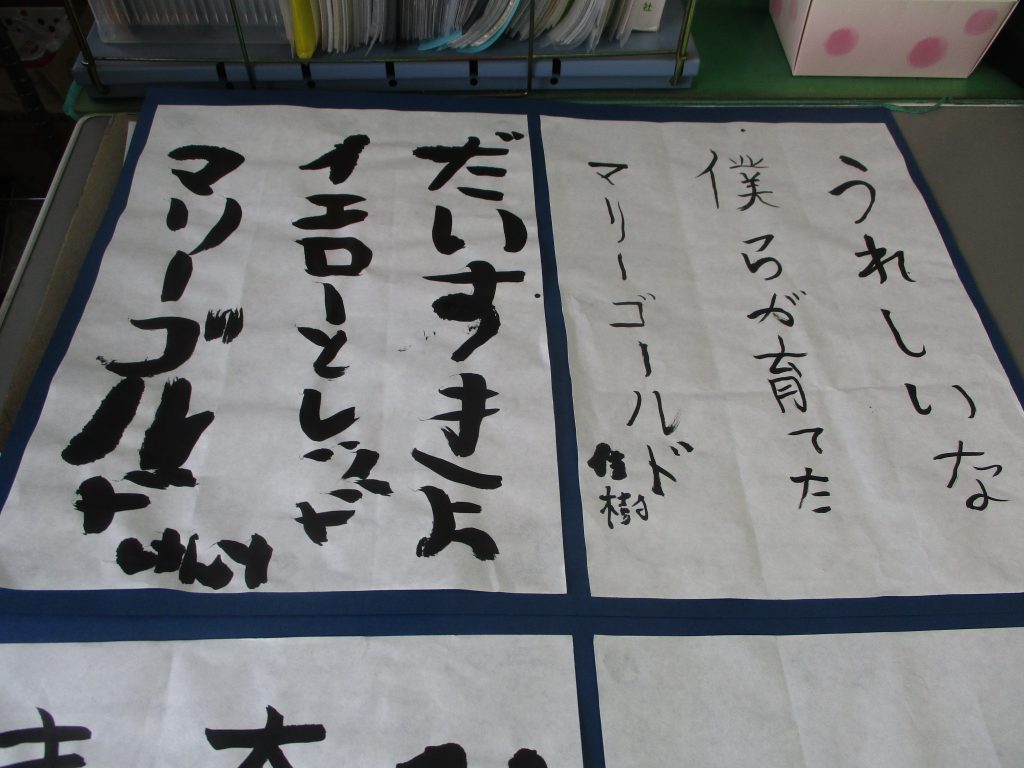 うれしいな
僕らが育てた
マリーゴールド
佳樹
だいすきよ
イエローとレッド
マリーゴールド
社